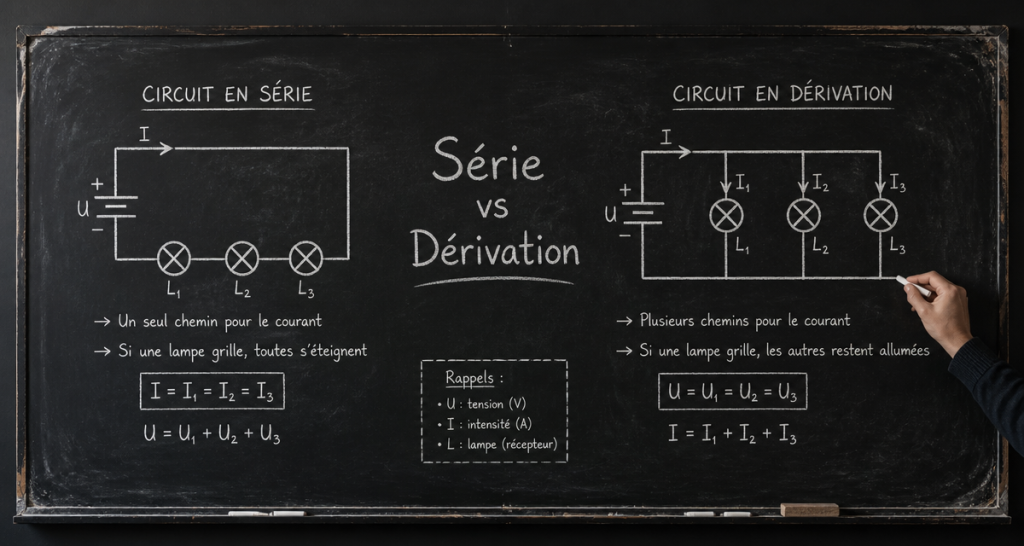 CIRCUIT EN SÉRIE
I
+
U
−
L₁ L₂ L₃
→ Un seul chemin pour le courant
→ Si une lampe grille, toutes s'éteignent
I = I₁ = I₂ = I₃
U = U₁ + U₂ + U₃
Série
vs
Dérivation
Rappels :
• U : tension (V)
• I : intensité (A)
• L : lampe (récepteur)
CIRCUIT EN DÉRIVATION
I
+
U
−
I₁ I₂ I₃
L₁ L₂ L₃
→ Plusieurs chemins pour le courant
→ Si une lampe grille, les autres restent allumées
U = U₁ = U₂ = U₃
I = I₁ + I₂ + I₃